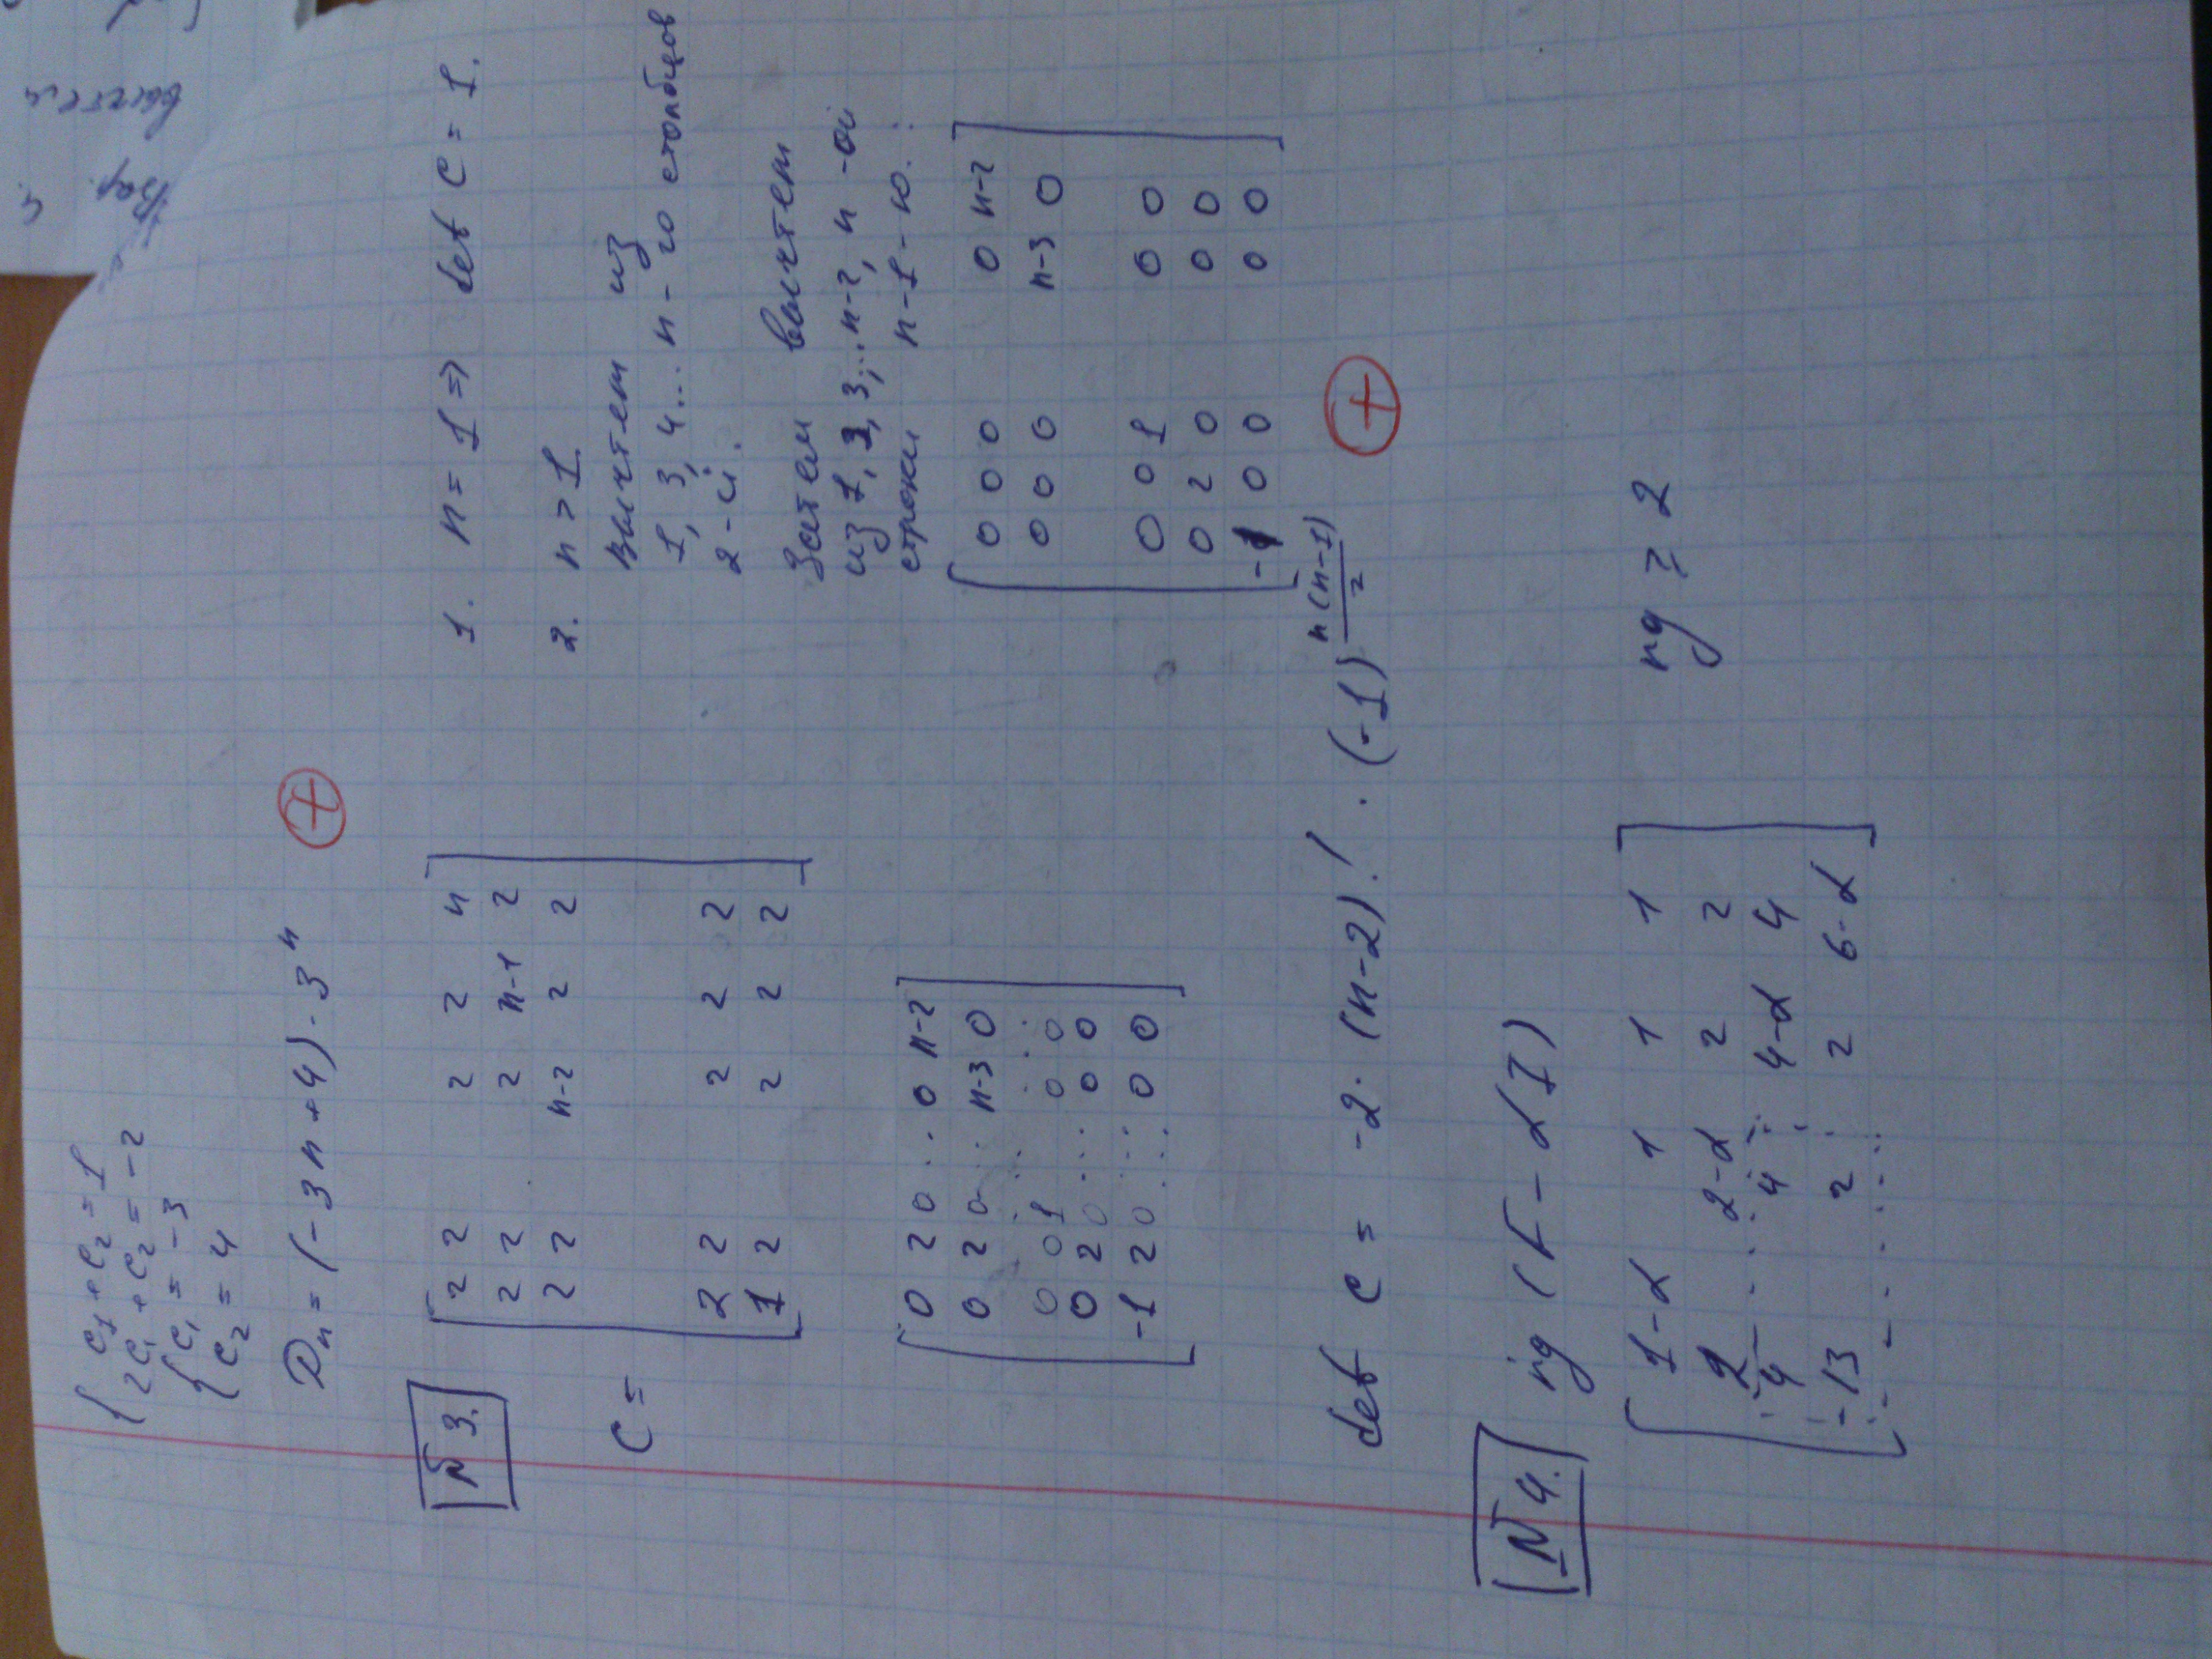 Вар.
вычтем
{ c₁ + c₂ = 1
2c₁ + c₂ = -2
{ c₁ = -3
c₂ = 4
Dₙ = (-3n+4)·3ⁿ
N 3.
C =
[ 2 2 2 2 n
2 2 2 n-1 2
2 2 n-2 2 2
2 2 2 2 2
1 2 2 2 2 ]
1. n = 1 => det C = 1.
2. n > 1
Вычтем из
1, 3, 4... n-го столбцов
2-й.
Затем вычтем
из 1, 2, 3,... n-2, n-ой
строки n-1-ю.:
[ 0 2 0 ... 0 n-2
0 2 0 ... n-3 0
0 0 1 ... 0 0
0 2 0 ... 0 0
-1 2 0 ... 0 0 ]
[ 0 0 0 0 n-2
0 0 0 n-3 0
0 0 1 0 0
0 2 0 0 0
-1 0 0 0 0 ]
det C = -2·(n-2)!·(-1)^(n(n-1)/2)
N 4.
rg (F - λI)
[ 1-λ 1 1 1
2 2-λ 2 2
4 4 4-λ 4
-13 2 2 6-λ ]
rg ≥ 2